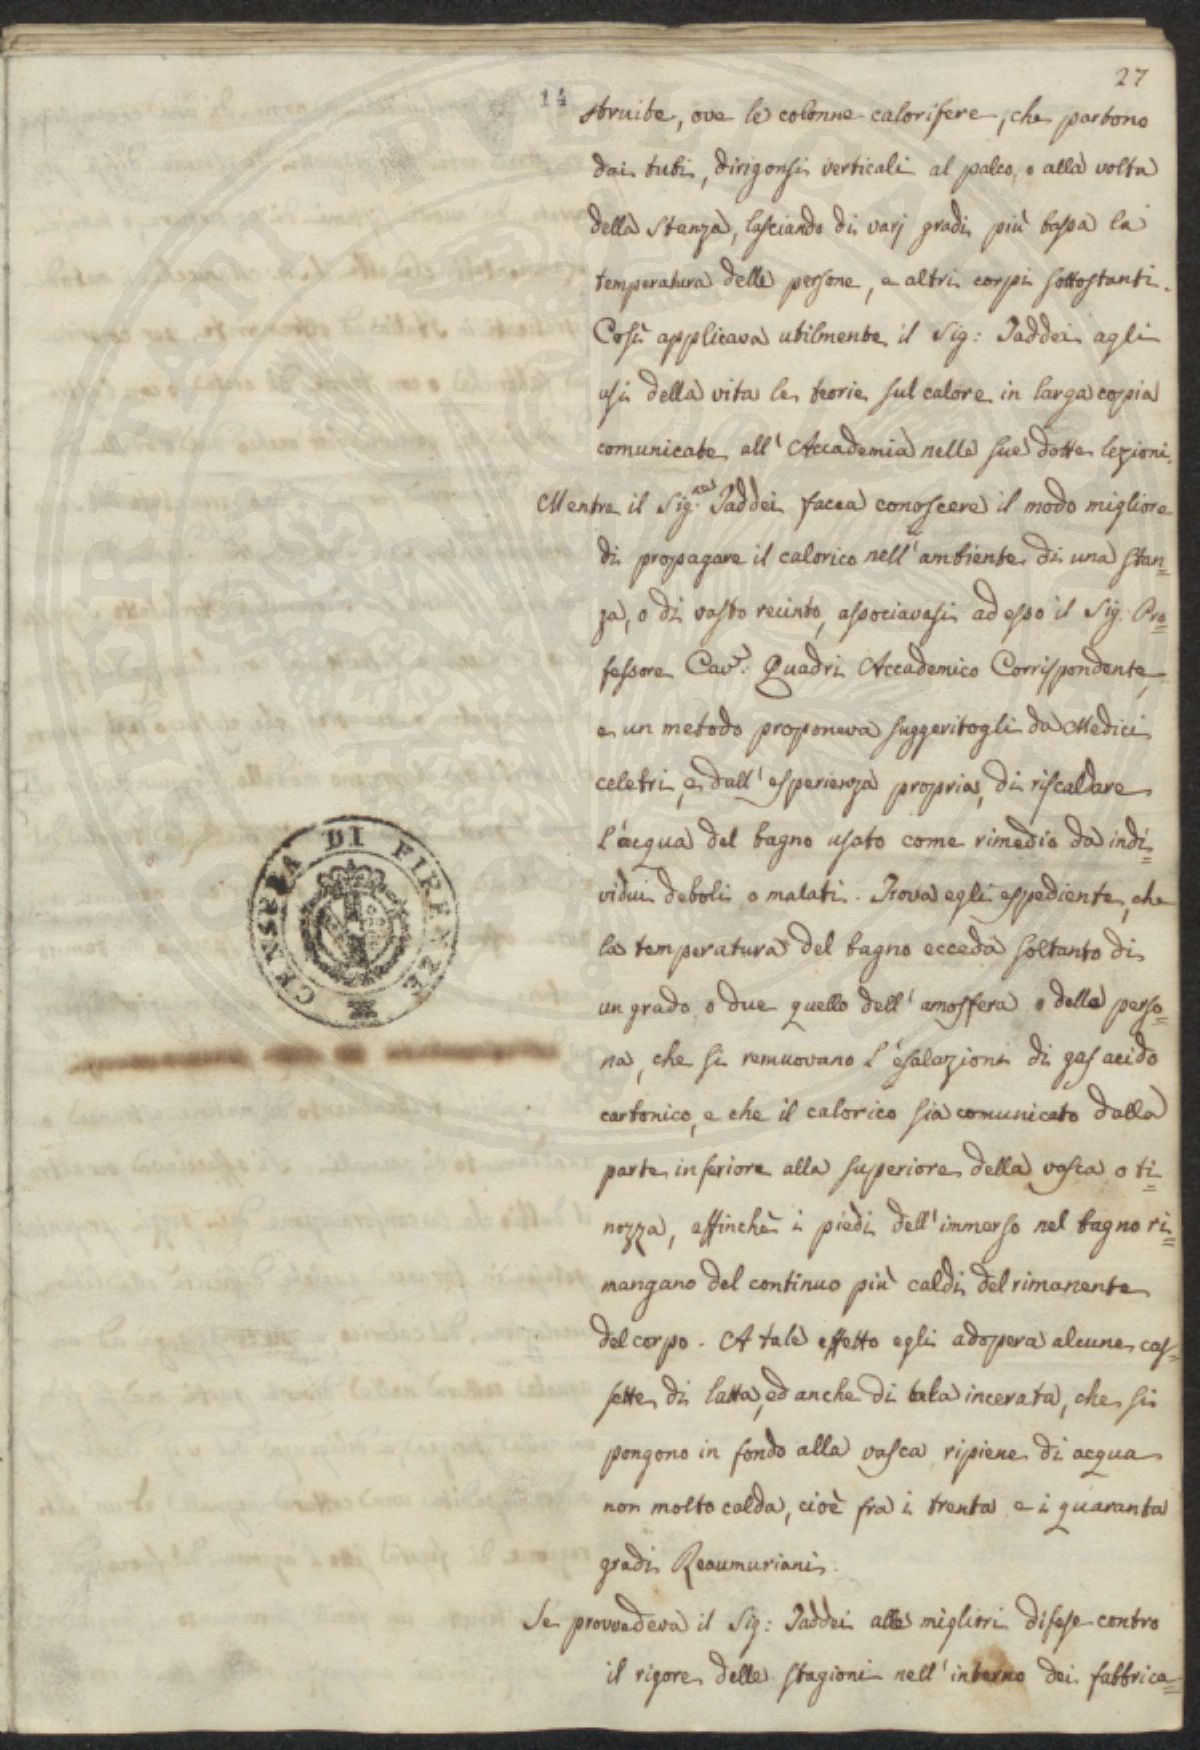 27
14
struite, ove le colonne calorifere, che partono
dai tubi, dirigonsi verticali al palco, o alla volta
della stanza, lasciando di varj gradi più bassa la
temperatura delle persone, e altri corpi sottostanti.
Così applicava utilmente il Sig: Taddei agli
usi della vita le teorie sul calore in larga coppia
comunicate all'Accademia nelle sue dotte lezioni.
Mentre il Sig.re Taddei facea conoscere il modo migliore
di propagare il calorico nell'ambiente di una stan=
za, o di vasto recinto, associavasi ad esso il Sig. Pro=
fessore Cav.e Quadri Accademico Corrispondente,
e un metodo proponeva suggeritogli da Medici
celebri, e dall'esperienza propria, di riscaldare
l'acqua del bagno usato come rimedio da indi=
vidui deboli o malati. Trova egli espediente, che
la temperatura del bagno ecceda soltanto di
un grado o due quello dell'amosfera o della perso=
na, che si remuovano l'esalazioni di gas acido
carbonico, e che il calorico sia comunicato dalla
parte inferiore alla superiore della vasca o ti=
nozza, affinchè i piedi dell'immerso nel bagno ri=
mangano del continuo più caldi del rimanente
del corpo. A tale effetto egli adopera alcune cas=
sette di latta, ed anche di tela incerata, che si
pongono in fondo alla vasca ripiene di acqua
non molto calda, cioè fra i trenta e i quaranta
gradi Reaumuriani.
Se provvedeva il Sig: Taddei alle migliori difese contro
il rigore delle stagioni nell'interno dei fabbrica=
CENSURA DI FIRENZE